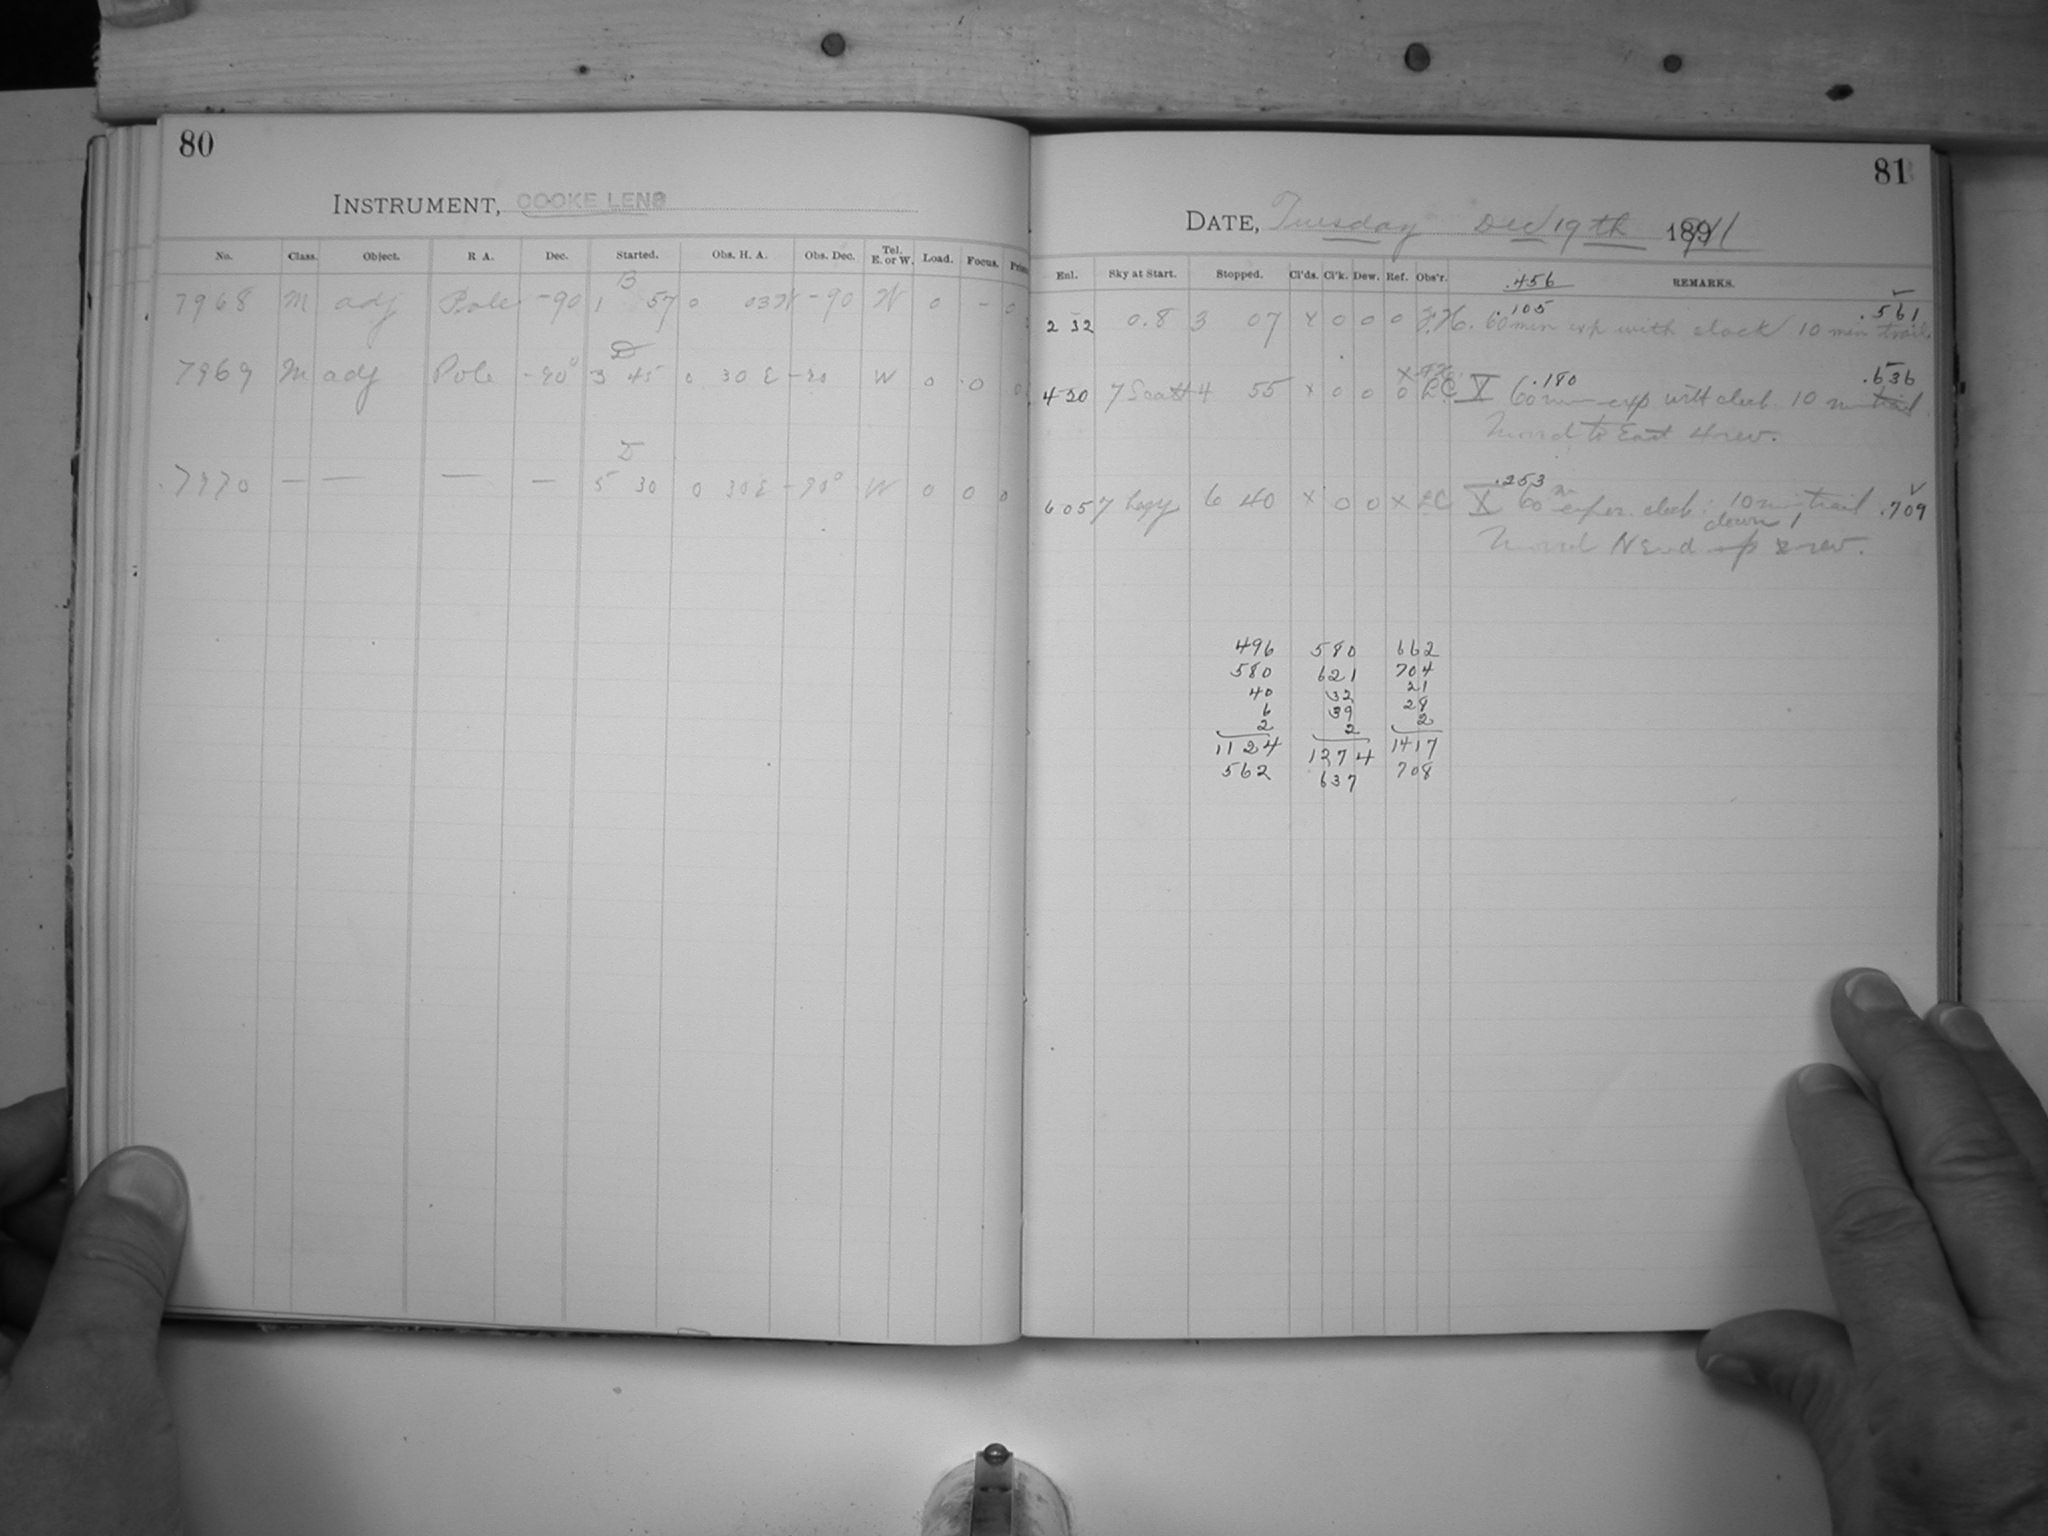 80
INSTRUMENT, COOKE LENS
No. Class. Object. R A. Dec. Started. Obs. H. A. Obs. Dec. Tel. E. or W. Load. Focus.
B
7968 M adj Pole -90 1 57 0 03W -90 W 0 - 0
D
7969 M adj Pole -90° 3 45 0 30 E -90 W 0 0 0
D
7970 — — — — 5 30 0 30 E -90° W 0 0 0
81
DATE, Tuesday Dec 19th 1911
Enl. Sky at Start. Stopped. Cl'ds. Cl'k. Dew. Ref. Obs'r. .456 REMARKS.
.105 .561
2 32 0.8 3 07 X 0 0 0 60 min exp with clock 10 min trail.
.180 .636
4 20 7 4 55 X 0 0 0 LC X 60 min exp with clock 10 min trail
Moved to East 4 rev.
.253
6 05 7 Hazy 6 40 X 0 0 X LC X 60 m expos. clock. 10 min trail .709
down 1
Moved N end up rev.
496 580 662
580 621 704
40 32 21
6 39 28
2 2 2
1124 1274 1417
562 637 708